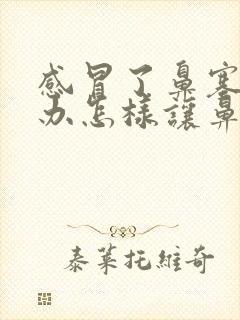 感冒了鼻塞
办怎样讓鼻
泰莱托維奇